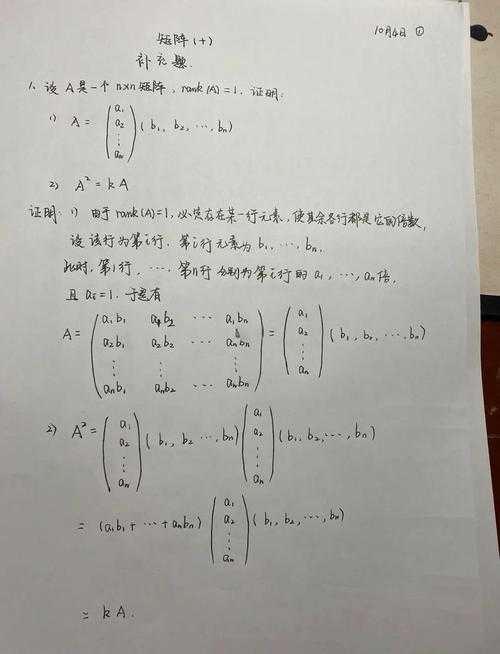 10月4日 ①
矩阵 (十)
补充题.
1. 设 A 是一个 n×n 矩阵, rank(A)=1. 证明:
1) A = (a₁ a₂ ⋮ aₙ) (b₁, b₂, ⋯, bₙ)
2) A² = kA
证明: 1) 由于 rank(A)=1, 必定存在某一行元素, 使其余各行都是它的倍数,
设该行为第i行. 第i行元素为 b₁, ⋯, bₙ.
此时, 第1行, ⋯, 第n行分别为第i行的 a₁, ⋯, aₙ倍,
且 aᵢ=1. 于是有
A = (a₁b₁ a₁b₂ ⋯ a₁bₙ
a₂b₁ a₂b₂ ⋯ a₂bₙ
⋮ ⋮ ⋮
aₙb₁ aₙb₂ ⋯ aₙbₙ) = (a₁ a₂ ⋮ aₙ) (b₁, b₂, ⋯, bₙ)
2) A² = (a₁ a₂ ⋮ aₙ) (b₁, b₂ ⋯, bₙ) (a₁ a₂ ⋮ aₙ) (b₁, b₂, ⋯, bₙ)
= (a₁b₁ + ⋯ + aₙbₙ) (a₁ a₂ ⋮ aₙ) (b₁, b₂, ⋯, bₙ)
= kA.